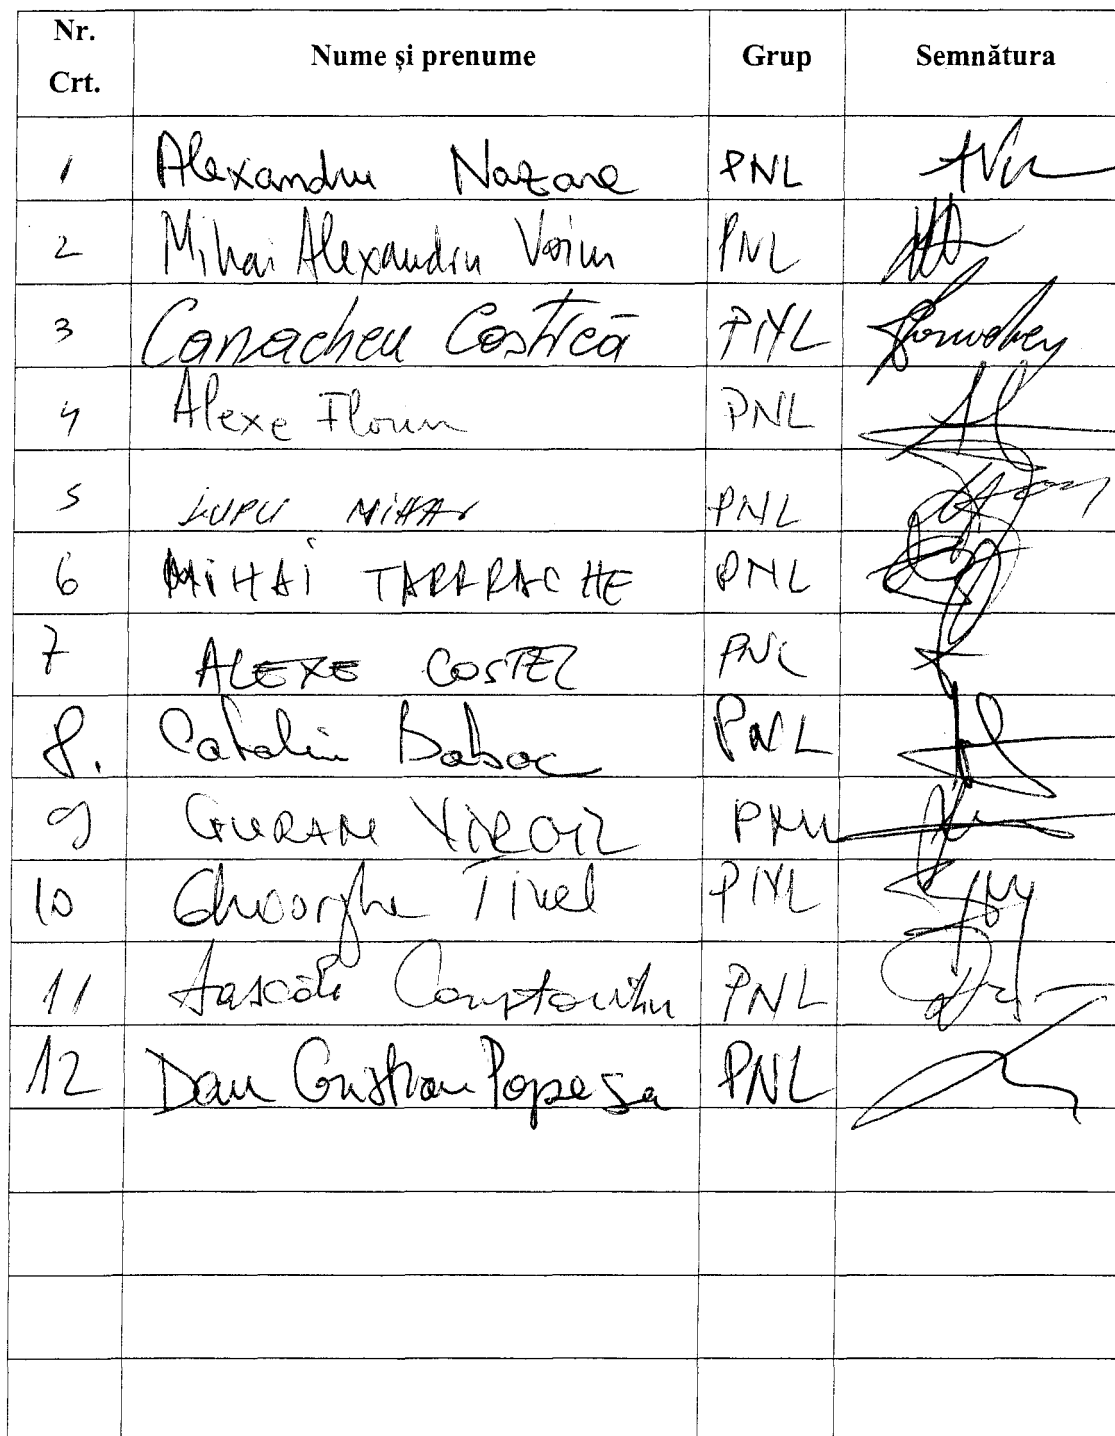 Nr. Crt. Nume și prenume Grup Semnătura
1 Alexandru Nazare PNL
2 Mihai Alexandru Voicu PNL
3 Canacheu Costică PNL
4 Alexe Florin PNL
5 LUPU MIHAI PNL
6 MIHAI TARARACHE PNL
7 ALEXE COSTEL PNL
8. Catalin Boboc PNL
9 GURAN VIRGIL PNL
10 Gheorghe Tinel PNL
11 Dascălu Constantin PNL
12 Dan Cristian Popescu PNL